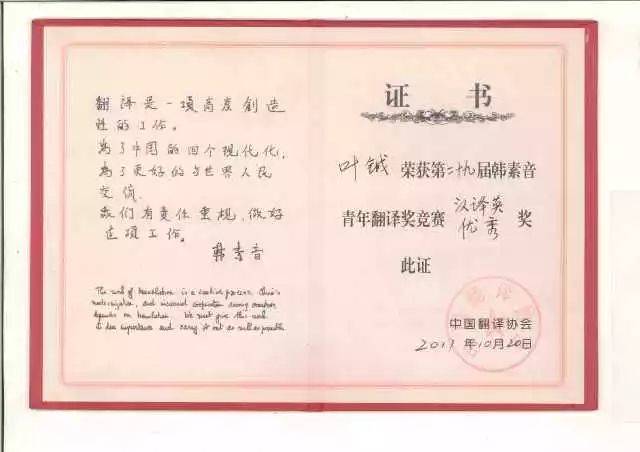 翻译是一項高度創造
性的工作。
为了中国的四个现代化,
为了更好的与世界人民
交流,
我们有责任重视,做好
这项工作。
韩素音
The work of translation is a creative process. China's
modernization, and increased cooperation among countries
depends on translation. We must give this work
its due importance and carry it out as well as possible
证书
叶铖 荣获第二十九届韩素音
青年翻译奖竞赛 汉译英 优秀 奖
此证
中国翻译协会
2017年10月20日